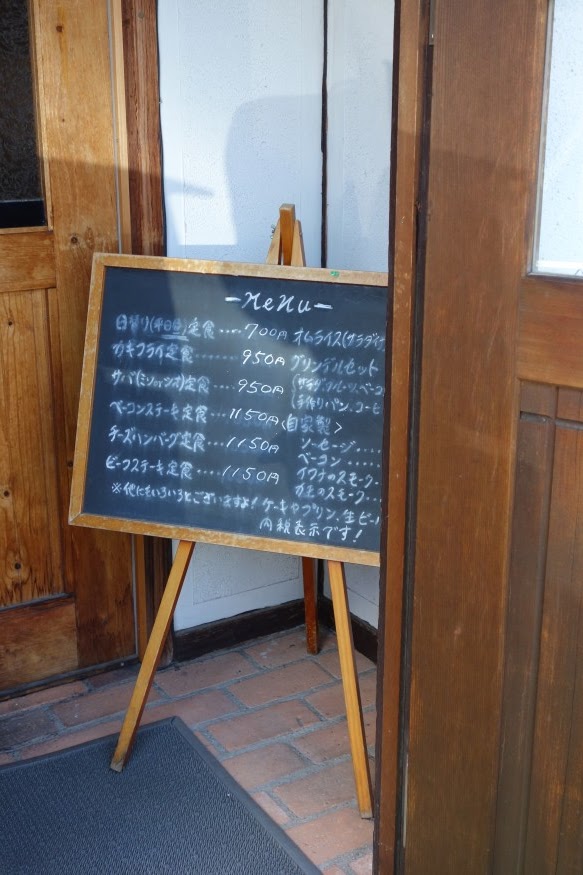 -MeNu-
日替り(平日のみ)定食....700円
カキフライ定食........950円
サバ(ミソorシオ)定食...950円
ベーコンステーキ定食...1150円
チーズハンバーグ定食...1150円
ビーフステーキ定食....1150円
オムライス(サラダ付
グリンデルセット
(サラダ.フルーツ.ベーコ
手作りパン、コーヒ
<自家製>
ソーセージ....
ベーコン....
イワナのスモーク..
カモのスモーク...
※他にもいろいろとございますよ!ケーキやプリン、生ビー
内税表示です!